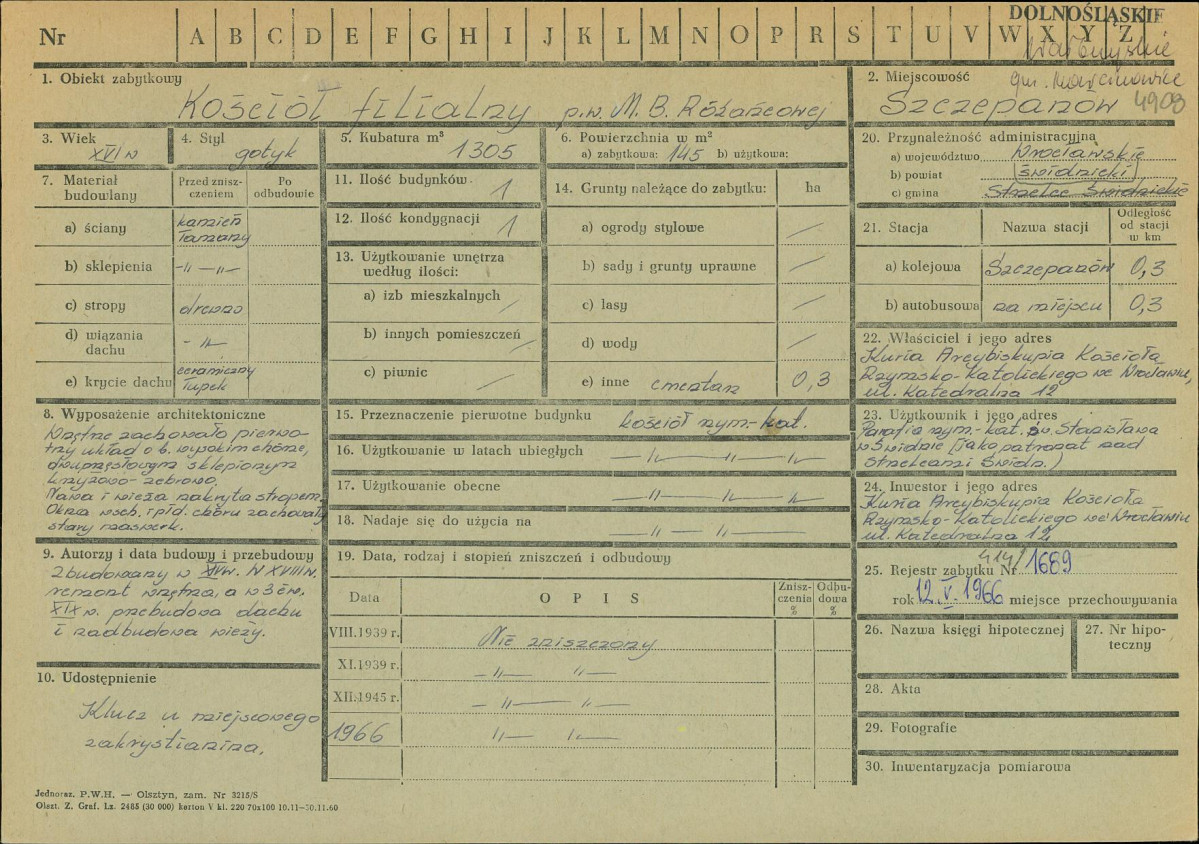 DOLNOŚLĄSKIE
Nr A B C D E F G H I J K L M N O P R S T U V W X Y Z
wałbrzyskie
1. Obiekt zabytkowy
Kościół filialny p.w. M.B. Różańcowej
2. Miejscowość gm. Marcinowice
Szczepanów 4908
3. Wiek
XVI w
4. Styl
gotyk
5. Kubatura m³
1305
6. Powierzchnia w m²
a) zabytkowa: 145 b) użytkowa:
7. Materiał budowlany
Przed zniszczeniem
Po odbudowie
a) ściany kamień łamany
b) sklepienia -"-"-
c) stropy drewno
d) wiązania dachu -"-
e) krycie dachu ceramiczny łupek
8. Wyposażenie architektoniczne
Wnętrze zachowało pierwo-
tny układ o b. wysokim chórze,
dwuprzęsłowym sklepionym
krzyżowo-żebrowo.
Nawa i wieża nakryta stropem.
Okna wsch. i płd. chóru zachowały
stary maswerk.
9. Autorzy i data budowy i przebudowy
Zbudowany w XVI w. W XVIII w.
remont wnętrza, a w 3 ćw.
XIX w. przebudowa dachu
i nadbudowa wieży.
10. Udostępnienie
Klucz u miejscowego
zakrystianina.
11. Ilość budynków 1
12. Ilość kondygnacji 1
13. Użytkowanie wnętrza według ilości:
a) izb mieszkalnych /
b) innych pomieszczeń /
c) piwnic /
14. Grunty należące do zabytku: ha
a) ogrody stylowe /
b) sady i grunty uprawne /
c) lasy /
d) wody /
e) inne cmentarz 0,3
15. Przeznaczenie pierwotne budynku kościół rzym-kat.
16. Użytkowanie w latach ubiegłych -"-"-"-
17. Użytkowanie obecne -"-"-"-
18. Nadaje się do użycia na -"-"-
19. Data, rodzaj i stopień zniszczeń i odbudowy
Data OPIS Zniszczenia % Odbudowa %
VIII.1939 r. Nie zniszczony
XI.1939 r. -"- "-
XII.1945 r. -"- "-
1966 "- "-
20. Przynależność administracyjna
a) województwo wrocławskie
b) powiat świdnicki
c) gmina Strzelce Świdnickie
21. Stacja Nazwa stacji Odległość od stacji w km
a) kolejowa Szczepanów 0,3
b) autobusowa na miejscu 0,3
22. Właściciel i jego adres
Kuria Arcybiskupia Kościoła
Rzymsko-Katolickiego we Wrocławiu,
ul. Katedralna 12
23. Użytkownik i jego adres
Parafia rzym-kat. św. Stanisława
w Świdnicy (jako patronat nad
Strzelcami Świdn.)
24. Inwestor i jego adres
Kuria Arcybiskupia Kościoła
Rzymsko-Katolickiego we Wrocławiu
ul. Katedralna 12
414/
25. Rejestr zabytku Nr 1689
rok 12.V.1966 miejsce przechowywania
26. Nazwa księgi hipotecznej
27. Nr hipo-
teczny
28. Akta
29. Fotografie
30. Inwentaryzacja pomiarowa
Jednoraz. P.W.H. — Olsztyn, zam. Nr 3215/S
Olszt. Z. Graf. Lz. 2485 (30 000) karton V kl. 220 70x100 10.11—30.11.60